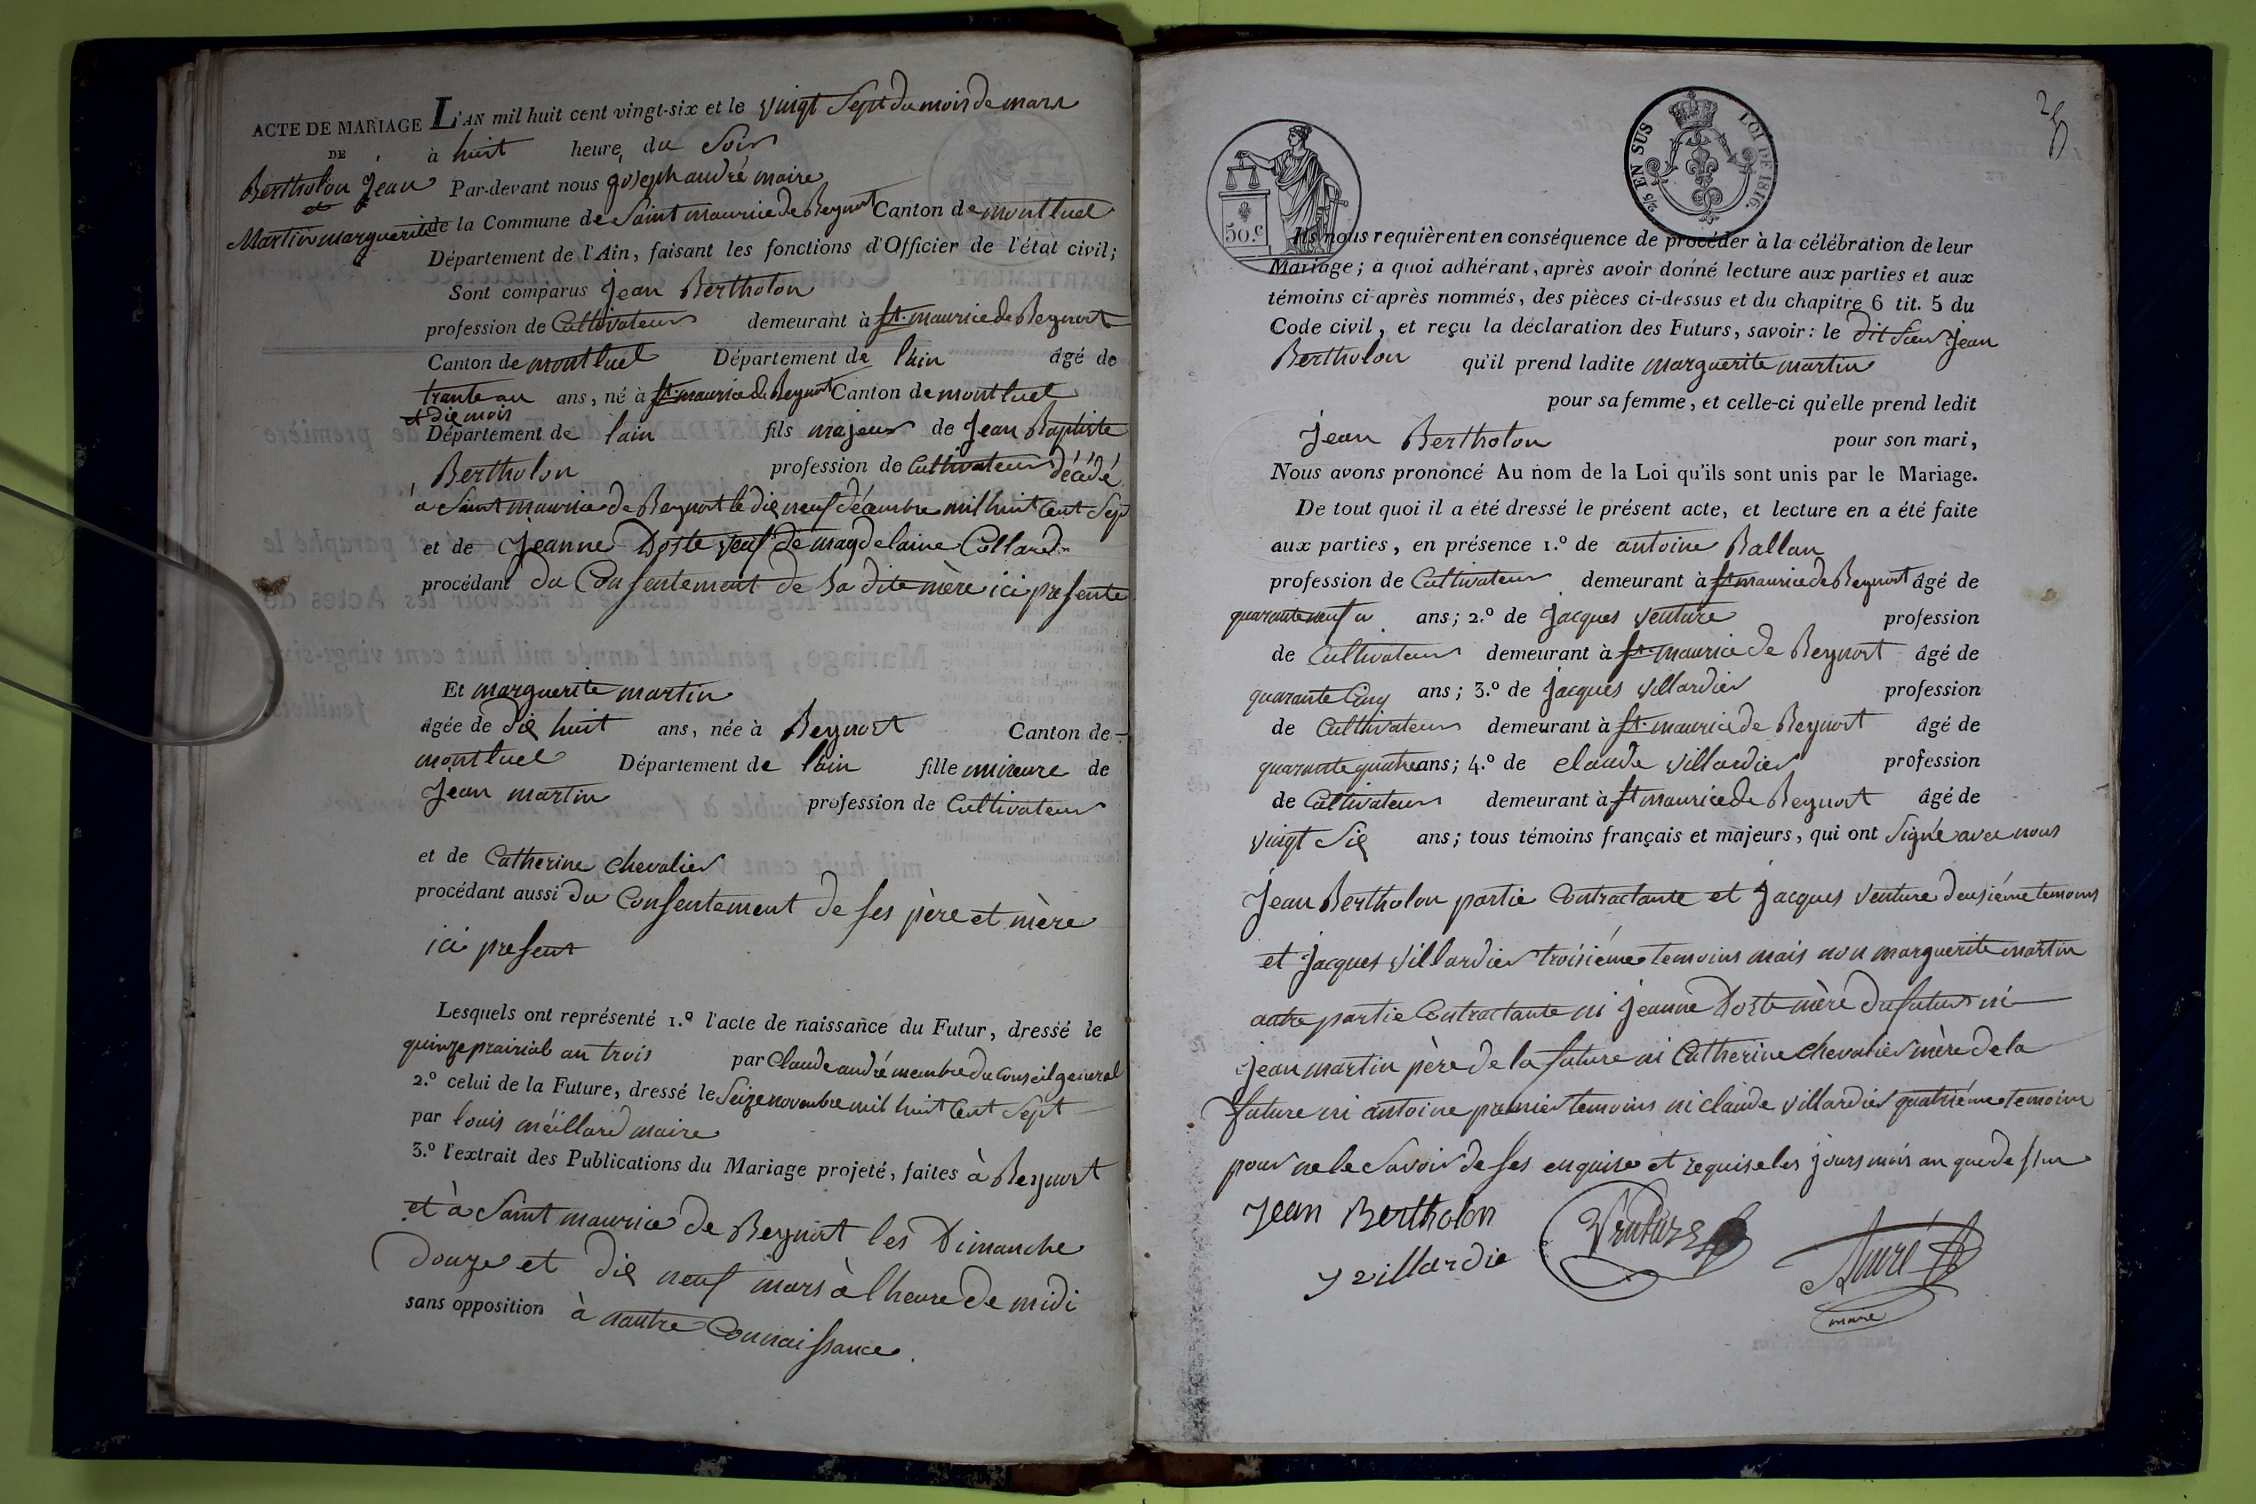 ACTE DE MARIAGE
DE
Bertholon Jean
et
Martin marguerite
L'AN mil huit cent vingt-six et le vingt Sept du mois de mars
à huit heure, du Soir
Par-devant nous joseph andré maire
de la Commune de Saint maurice de Beynost Canton de montluel
Département de l'Ain, faisant les fonctions d'Officier de l'état civil;
Sont comparus Jean Bertholon
profession de Cultivateur demeurant à st. maurice de Beynost
Canton de montluel Département de l'ain âgé de
trante an ans, né à st. maurice de Beynost Canton de montluel
et dix mois
Département de l'ain fils majeur de Jean Baptiste
Bertholon profession de Cultivateur décédé
à Saint maurice de Beynost le dix neuf décembre mil huit Cent Sept
et de Jeanne Doste veuf de magdelaine Collard
procédant du Consentement de Sa dite mère ici presente
Et marguerite martin
âgée de dix huit ans, née à Beynost Canton de
montluel Département de l'ain fille mineure de
Jean martin profession de Cultivateur
et de Catherine chevalier
procédant aussi du Consentement de ses père et mère
ici present
Lesquels ont représenté 1.º l'acte de naissance du Futur, dressé le
quinze prairial an trois par Claude andré membre du Conseil general
2.º celui de la Future, dressé le Seize novembre mil huit Cent Sept
par louis méillard maire
3.º l'extrait des Publications du Mariage projeté, faites à Beynost
et à Saint maurice de Beynost les Dimanche
douze et dix neuf mars à l'heure de midi
sans opposition à nautre Connaissance.
2/5 EN SUS LOI DE 1816.
50.c
Ils nous requièrent en conséquence de procéder à la célébration de leur
Mariage; à quoi adhérant, après avoir donné lecture aux parties et aux
témoins ci-après nommés, des pièces ci-dessus et du chapitre 6 tit. 5 du
Code civil, et reçu la déclaration des Futurs, savoir: le dit Sieur Jean
Bertholon qu'il prend ladite marguerite martin
pour sa femme, et celle-ci qu'elle prend ledit
Jean Bertholon pour son mari,
Nous avons prononcé Au nom de la Loi qu'ils sont unis par le Mariage.
De tout quoi il a été dressé le présent acte, et lecture en a été faite
aux parties, en présence 1.º de antoine Ballan
profession de Cultivateur demeurant à st maurice de Beynost âgé de
quarante neuf ans; 2.º de Jacques venture profession
de Cultivateur demeurant à st maurice de Beynost âgé de
quarante Cinq ans; 3.º de Jacques villardier profession
de Cultivateur demeurant à st. maurice de Beynost âgé de
quarante quatre ans; 4.º de claude villardier profession
de Cultivateur demeurant à st maurice de Beynost âgé de
vingt Six ans; tous témoins français et majeurs, qui ont Signé avec nous
Jean Bertholon partie Contractante et Jacques venture deusiéme temoins
et Jacques villardier troisiéme temoins mais non marguerite martin
autre partie Contractante ni Jeanne Doste mère du futur ni
jean martin père de la future ni Catherine chevalier mère de la
future ni antoine premier temoins ni claude villardier quatriéme temoins
pour ne le Savoir de ses enquise et requise les jours mois an que dessus
Jean Bertholon
Venture
J villardie
André
maire